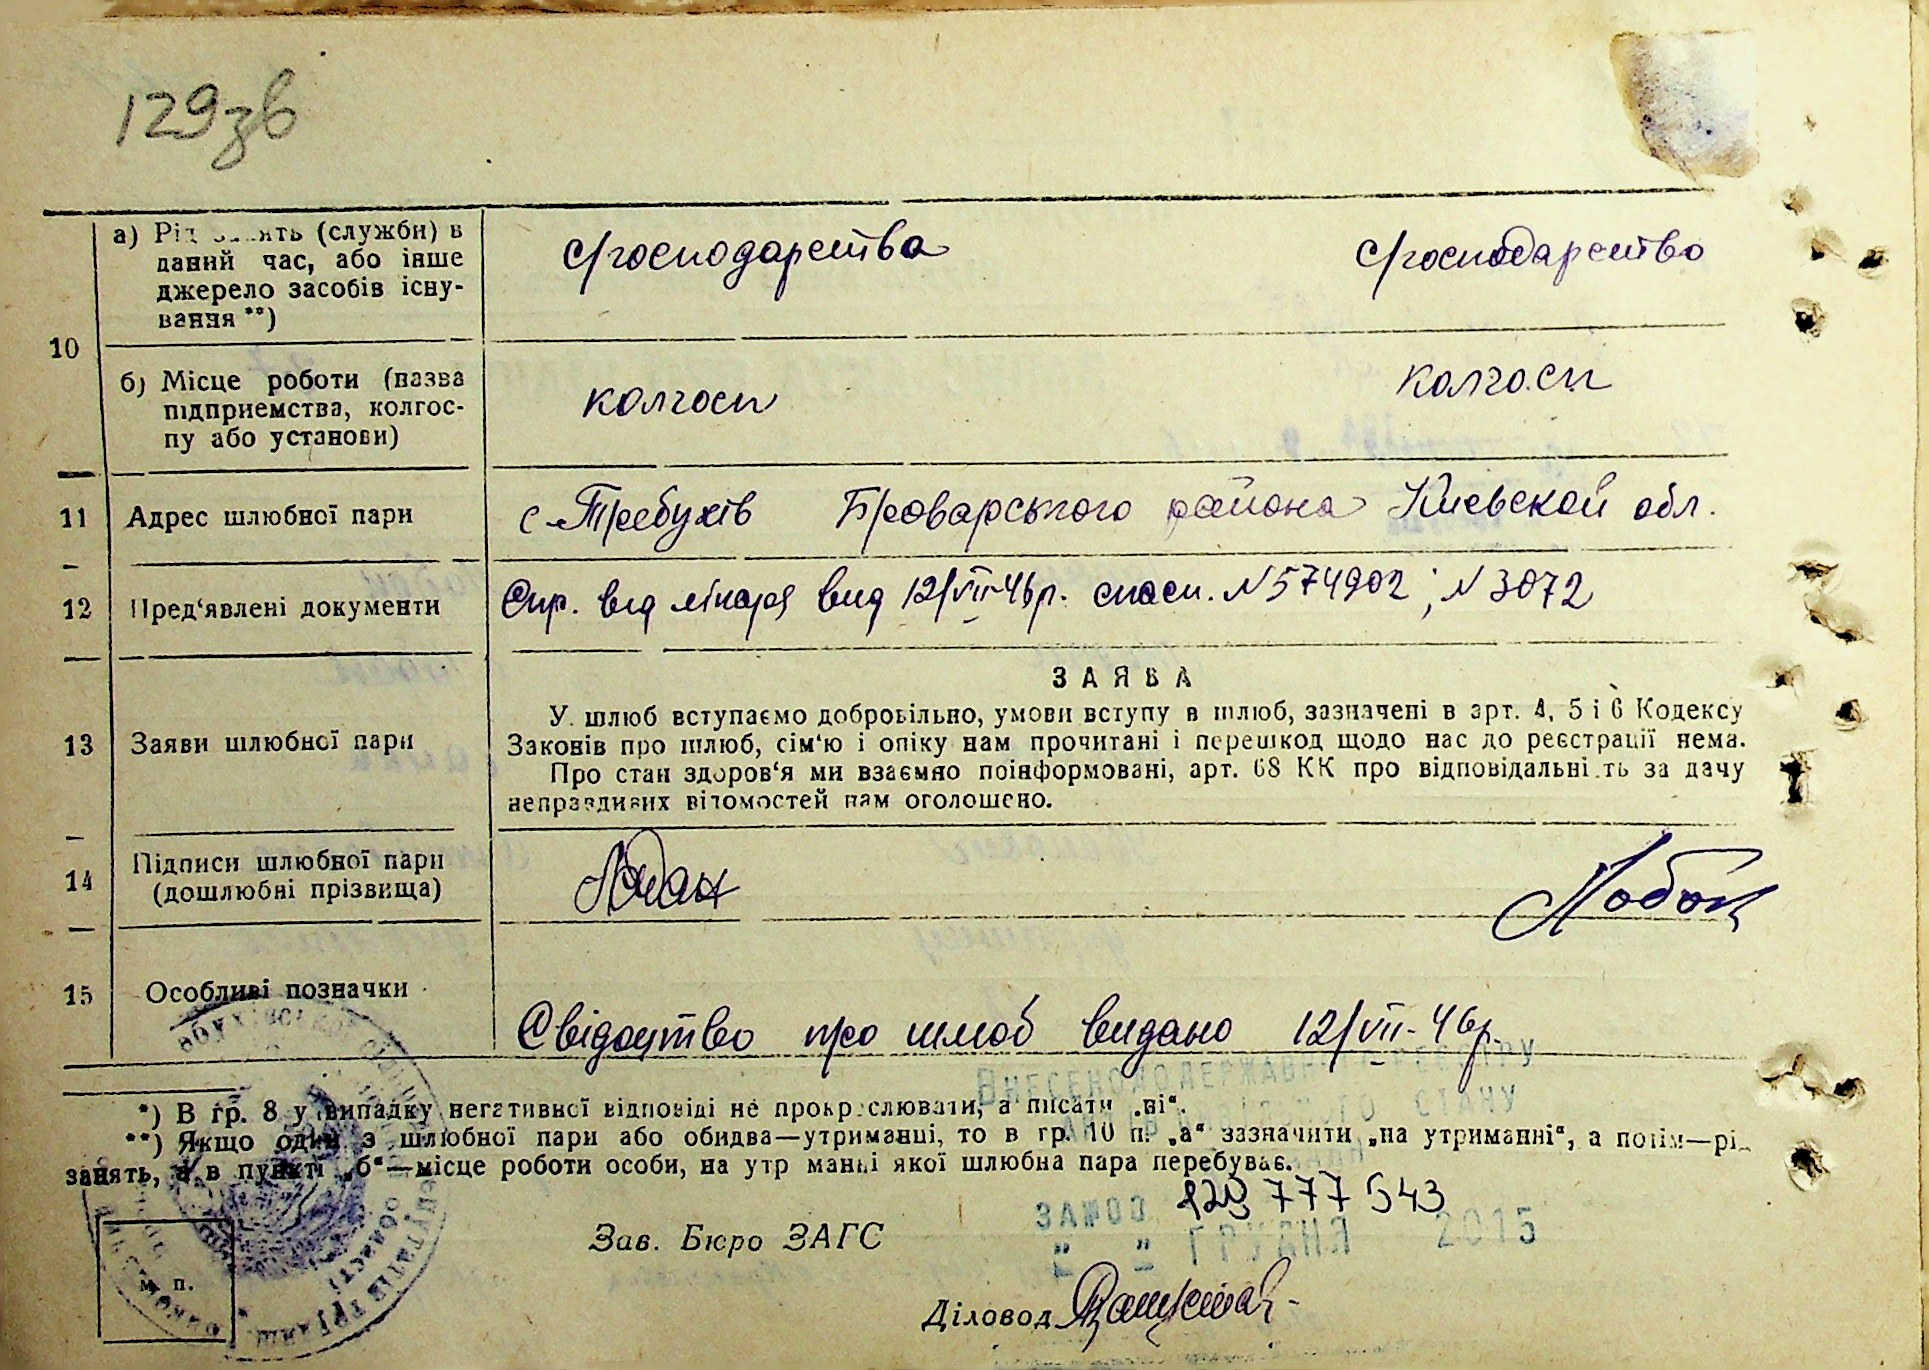 129зв
а) Рід занять (служби) в
даний час, або інше
джерело засобів існу-
вання **)
с/господарства
с/господарство
10
б) Місце роботи (назва
підприємства, колгос-
пу або установи)
колгосп
колгосп
11 Адрес шлюбної пари
с. Требухів Броварського района Киевской обл.
12 Пред'явлені документи
Спр. від лікаря вид 12/VII-46р. спасп. №574902; №3072
ЗАЯВА
13 Заяви шлюбної пари
У шлюб вступаємо добровільно, умови вступу в шлюб, зазначені в арт. 4, 5 і 6 Кодексу
Законів про шлюб, сім'ю і опіку нам прочитані і перешкод щодо нас до реєстрації нема.
Про стан здоров'я ми взаємно поінформовані, арт. 68 КК про відповідальність за дачу
неправдивих відомостей нам оголошено.
14 Підписи шлюбної пари
(дошлюбні прізвища)
Лобон
15 Особливі позначки
Свідоцтво про шлюб видано 12/VII-46р.
*) В гр. 8 у випадку негативної відповіді не прокреслювати, а писати „ні“.
**) Якщо один з шлюбної пари або обидва—утриманці, то в гр. 10 п. „а“ зазначити „на утриманні“, а потім—рід
занять, а в пункті „б“—місце роботи особи, на утриманні якої шлюбна пара перебуває.
ВНЕСЕНО ДО ДЕРЖАВНОГО РЕЄСТРУ
СТАНУ
ЗА №00 123 777 543
„ “ ГРУДНЯ 2015
Зав. Бюро ЗАГС
м. п.
Діловод